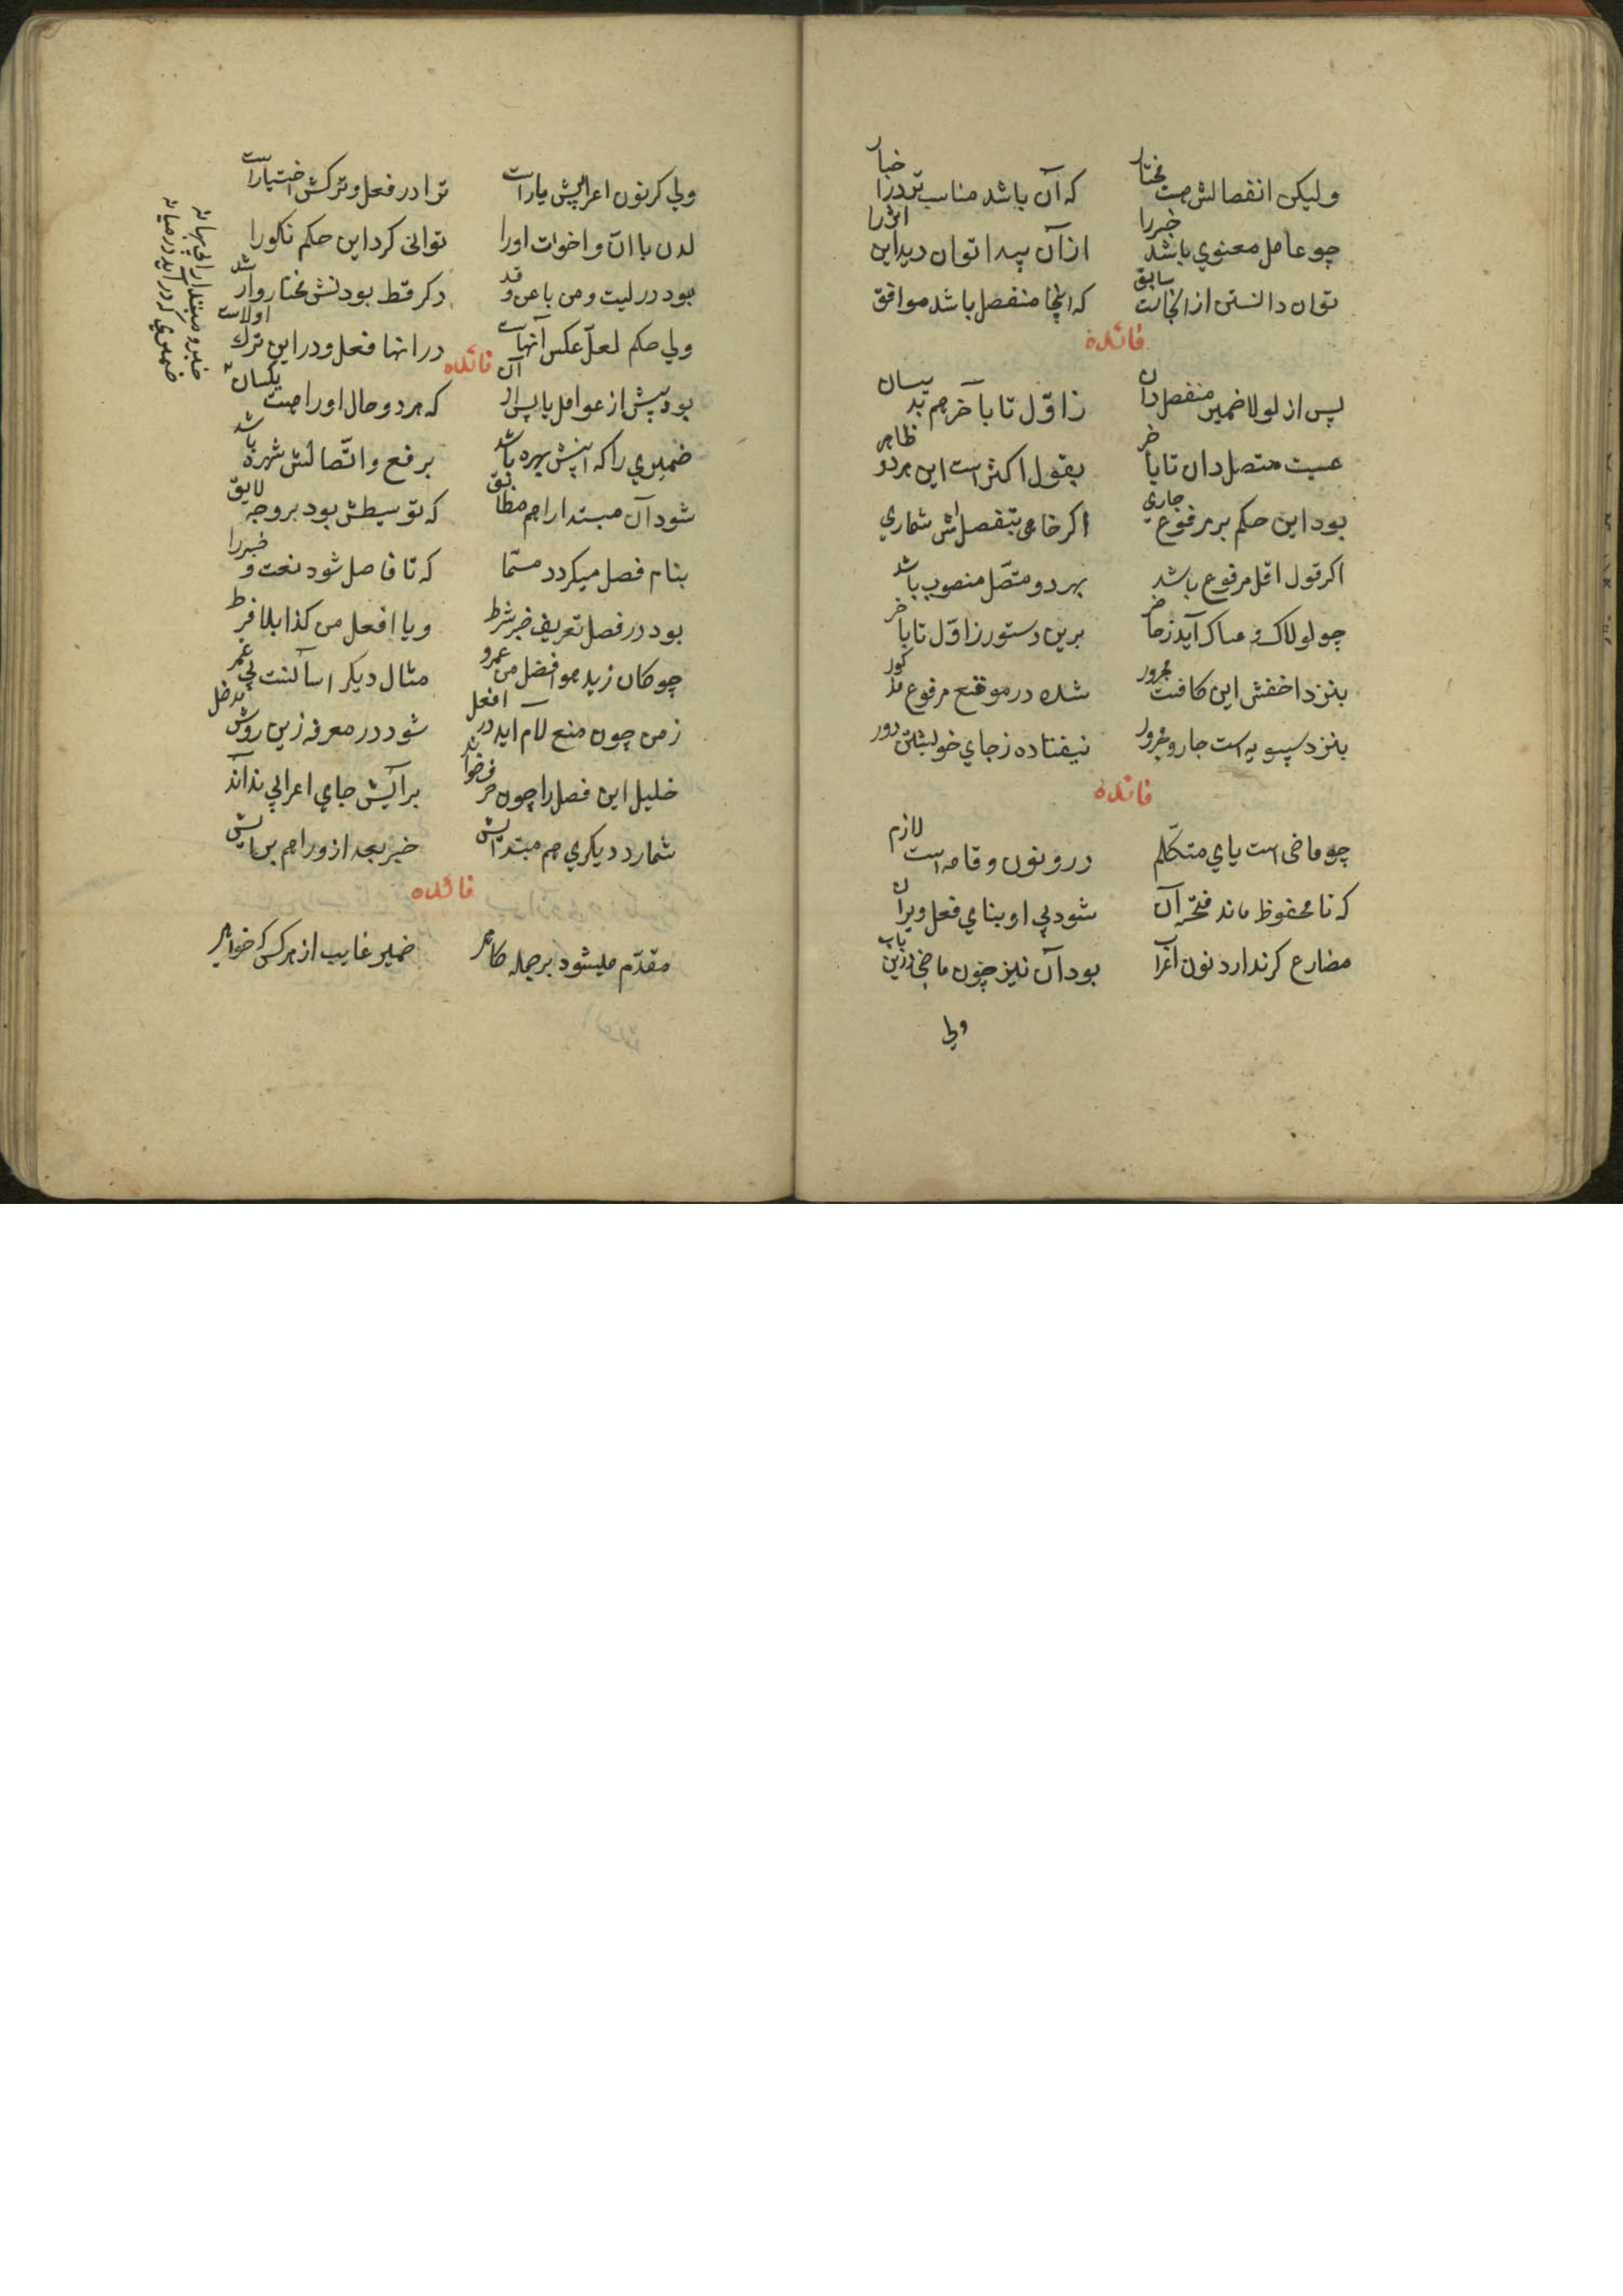 ولیکن انفصالش هست مختار که آن باشد مناسب‌تر در اخبار
چو عامل معنوی باشد خبر را از آن پیدا توان دید این اثر را
توان دانستن از ابخات سابق که اینجا منفصل باشد موافق
فائده
پس از لولا ضمیر منفصل دان ز اوّل تا بآخر هم بدیسان
عسیت متصل دان تا بآخر بقول اکثر است این هر دو ظاهر
بود این حکم بر مرفوع جاری اگر خواهی بتفصیلش شماری
اگر قول اقل مرفوع باشد بهر دو متصّل منصوب باشد
چو لولاک و عساک آید ز حاضر برین دستور ز اوّل تا بآخر
بنزد اخفش این کافت مجرور شده در موقع مرفوع مذکور
بنزد سیبویه است جار و مجرور نیفتاده ز جای خویشتن دور
فائده
چو ماضی است یای متکلّم درو نون وقایه است لازم
که تا محفوظ ماند فتحه آن شود پی او بنای فعل ویران
مضارع کر ندارد نون اعراب بود آن نیز چون ماضی درین باب
ولی
ولی کر نون اعرابیش یار است ترا در فعل و ترکش اختیار است
لدن با انّ و اخوات او را توانی کرد این حکم نکو را
بود در لیت و من با عن و قد دکر قط بودنش مختار وارشد
ولی حکم لعلّ عکس آنهاست در انها فعل و در این ترک اولاست
فائده
بود پیش از عوامل یا پس از آن که هر دو حال او را هست یکسان
ضمیری را که اینش بهره باشد برفع و اتّصالش شهره باشد
شود آن مبتدا را هم مطابق که توسیطش بود بر وجه لایق
بنام فصل میکردد مسمّا که تا فاصل شود نعت و خبر را
بود در فصل تعریف خبر شرط و یا افعل من کذا بلا فرط
چو کان زید هو افضل من عمرو مثال دیکر
ز من چون منع لام اید در افعل شود در معرفه زین روش مدخل
خلیل این فصل را چون حرف خواند برایش جای اعرابی نداند
شمارد دیکری هم مبتدایش خبر بعد از ورا هم بر
فائده
مقدّم میشود بر جمله کاهی ضمیر غایب از هر کس که خواهی
ضمیری کر در آید در میانه
خبر و مبتدا را بی بهانه